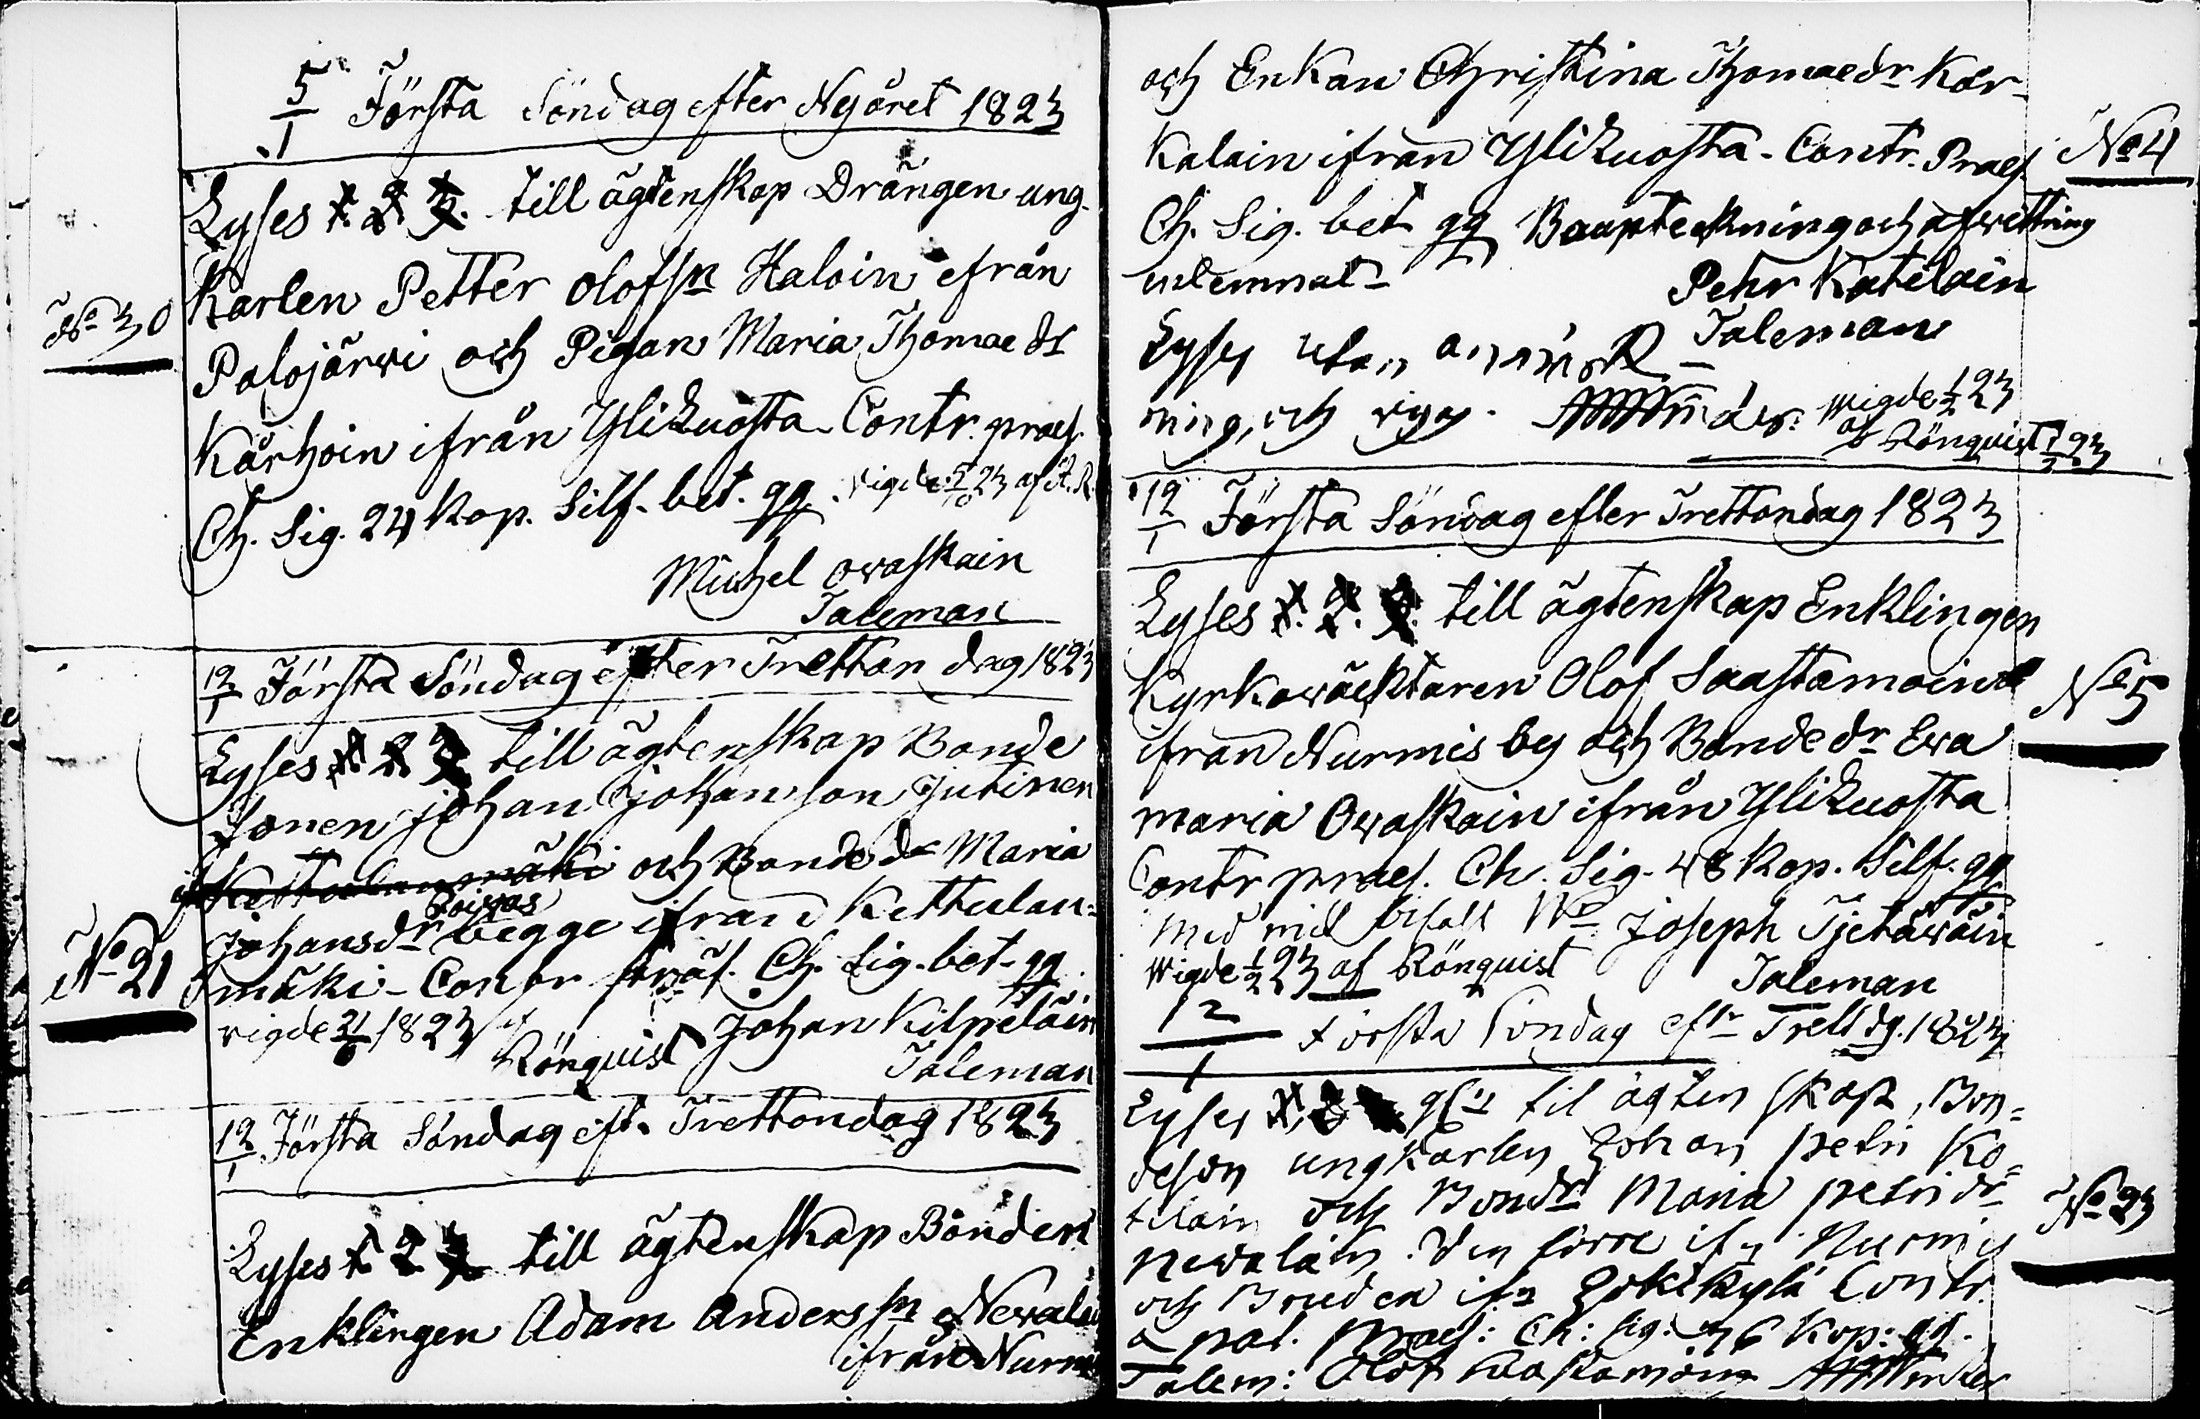 5/1 Första Söndag efter Nyåret 1823
Lyses 1. 2. 3. till ägtenskap Drängen ung-
No 30
Karlen Petter olofsn Haloin efrån
Palojärwi och Pigan Maria Thomae dr
Kärhoin ifrån Ylikuosta - Contr. praes.
Ch. Sig. 24 Kop. Silf. bet. gg. vigde 23 af A. R.
Michel Owaskain
Taleman
12/1 Första Söndag efter Tretton dag 1823
Lyses 1 2 3 till ägtenskap Bonde
Sonen johan johanson Jutinen
Kettulanmäki och Bonde dr Maria
Poigas
Johansdr begge ifran Kettulan=
No 21
mäki - Contr präs. Ch. Sig. bet. gg.
vigde 1823 af Rönquist
Johan Kilpeläin
Taleman
12/1 Första Söndag eft. Trettondag 1823
Lyses 1 2 3 till ägtenskap Bonden
Enklingen Adam Anderssn Newalai
ifrån Nurm
och Enkan Christina Thomaedr Kär-
No 4
kalain ifran Ylikuosta - Contr. Praes.
Ch. Sig. bet gg Bouptekning och afwittring
utlemnat -
Pehr Katelain
Taleman
Lyses utan anmärk-
ning, och
wigde 1/2 23
af Rönquist 1/2 23
12/1 Första Söndag efter Trettondag 1823
Lyses 1. 2. 3. till ägtenskap Enklingen
Kyrkowäcktaren Olof Saastamoin
No 5
ifran Nurmis by och Bonde dr Ewa
maria Owaskain ifrån Ylikuosta
Contr praes. Ch. Sig. 48 Kop. Silf. gg
Med mit
Joseph Tjetäwäin
Wigde 1/2 23 af Rönquist
Taleman
12/1 första Söndag eftr Trettdg. 1823
Lyses til ägten skap, Bon=
deson ungkarlen Johan petri Ko=
telain och Bondr Maria petridr
No 23
newalain. Den förre ifn Nurmis
och Bruden ifn Jokikylä Contr.
a pat. praes: Ch: sig: 96 Kop: gg.
Talem: Olof